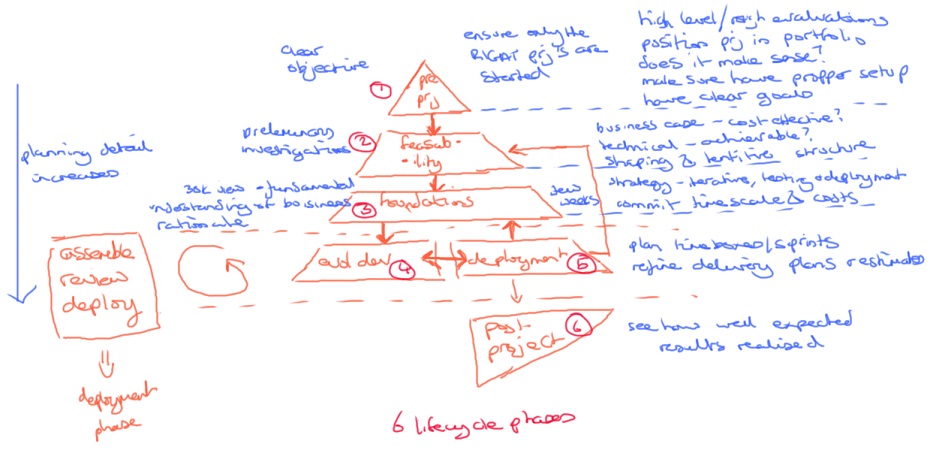 clear
objective
ensure only the
RIGHT prj's are
started
high level/rough evaluations
position prj in portfolio
does it make sense?
make sure have propper setup
have clear goals
1
pre
prj
planning detail
increases
prelemenary
investigations
2
feasab
-ility
business case - cost effective?
technical - achievable?
shaping & tentitive structure
30k view - fundamental
understanding of business
rationale
3
foundations
few
weeks
strategy - iterative, testing + deployment
commit timescale & costs
assemble
review
deploy
evol dev
4
deployment
5
plan timeboxes/sprints
refine delivery plans + estimates
post
project
6
see how well expected
results realised
deployment
phase
6 lifecycle phases